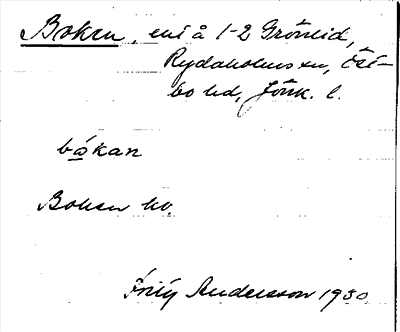 Boken, ens å 1-2 Grönlid,
Rydaholms sn, Öst-
bo hd, Jönk. l.
bákan
Boken ho.
Andersson 1930